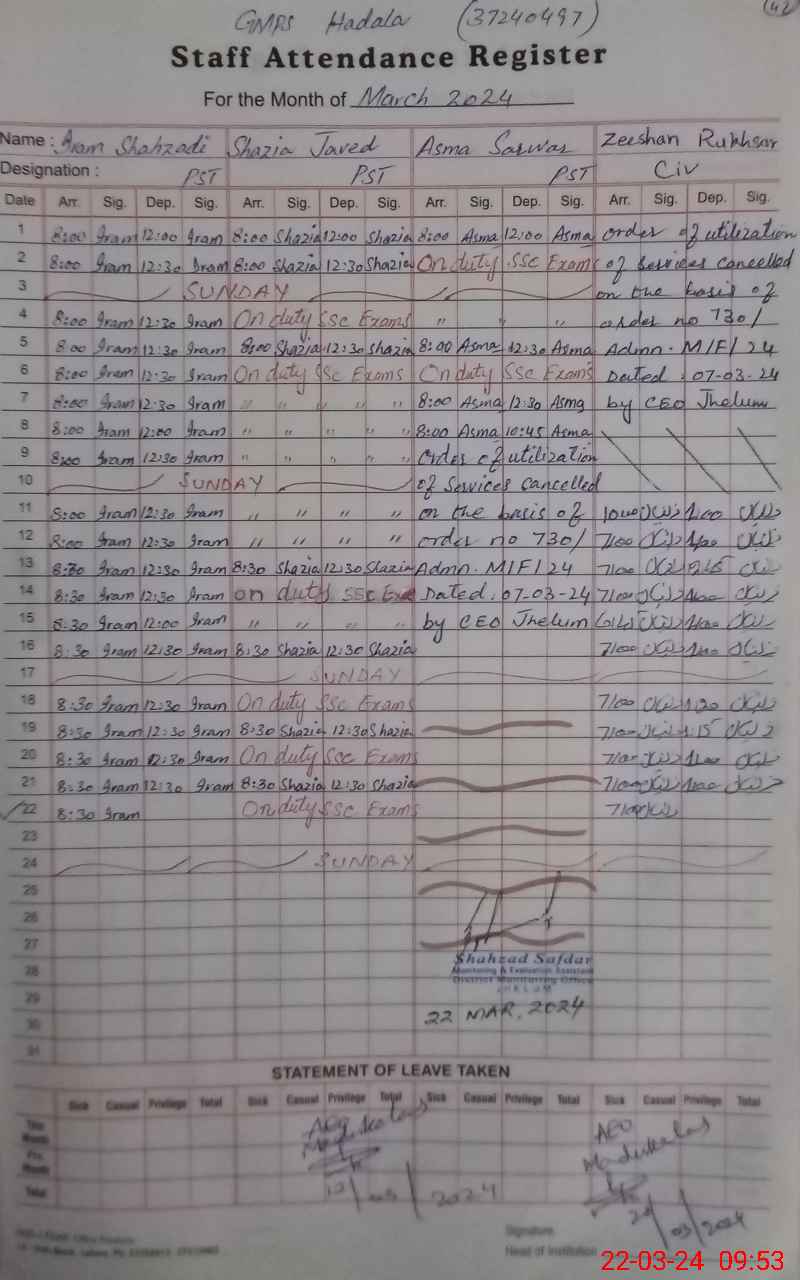 GMPS Hadala (37240497)
(42)
Staff Attendance Register
For the Month of March 2024
Name : Iram Shahzadi Shazia Javed Asma Sarwar Zeeshan Rukhsar
Designation : PST PST PST Civ
Date Arr. Sig. Dep. Sig. Arr. Sig. Dep. Sig. Arr. Sig. Dep. Sig. Arr. Sig. Dep. Sig.
1 8:00 Iram 12:00 Iram 8:00 Shazia 12:00 Shazia 8:00 Asma 12:00 Asma order of utilization
2 8:00 Iram 12:30 Iram 8:00 Shazia 12:30 Shazia On duty SSC Exams of services cancelled
3 SUNDAY on the basis of
4 8:00 Iram 12:30 Iram On duty SSC Exams " " " order no 730/
5 8:00 Iram 12:30 Iram 8:00 Shazia 12:30 Shazia 8:00 Asma 12:30 Asma Admn. M/F/ 24
6 8:00 Iram 12:30 Iram On duty SSC Exams On duty SSC Exams Dated : 07-03-24
7 8:00 Iram 12:30 Iram " " " " " 8:00 Asma 12:30 Asma by CEO Jhelum
8 8:00 Iram 12:00 Iram " " " " " 8:00 Asma 10:45 Asma
9 8:00 Iram 12:30 Iram " " " " " Order of utilization
10 SUNDAY of Services cancelled
11 8:00 Iram 12:30 Iram " " " " on the basis of
12 8:00 Iram 12:30 Iram " " " " order no 730/
13 8:30 Iram 12:30 Iram 8:30 Shazia 12:30 Shazia Admn. M/F/ 24
14 8:30 Iram 12:30 Iram on duty SSC Exa Dated : 07-03-24
15 8:30 Iram 12:00 Iram " " " " by CEO Jhelum
16 8:30 Iram 12:30 Iram 8:30 Shazia 12:30 Shazia
17 SUNDAY
18 8:30 Iram 12:30 Iram On duty SSC Exams
19 8:30 Iram 12:30 Iram 8:30 Shazia 12:30 Shazia
20 8:30 Iram 12:30 Iram On duty SSC Exams
21 8:30 Iram 12:30 Iram 8:30 Shazia 12:30 Shazia
22 8:30 Iram On duty SSC Exams
23
24 SUNDAY
25
26
27
Shahzad Safdar
Monitoring & Evaluation Assistant
28 District Monitoring Office
JHELUM
29
22 MAR, 2024
30
31
STATEMENT OF LEAVE TAKEN
Sick Casual Privilege Total Sick Casual Privilege Total Sick Casual Privilege Total Sick Casual Privilege Total
This Month
AEO
AEO
Pre. Month
Total
2024
03/2024
Signature
Head of Institution
22-03-24 09:53